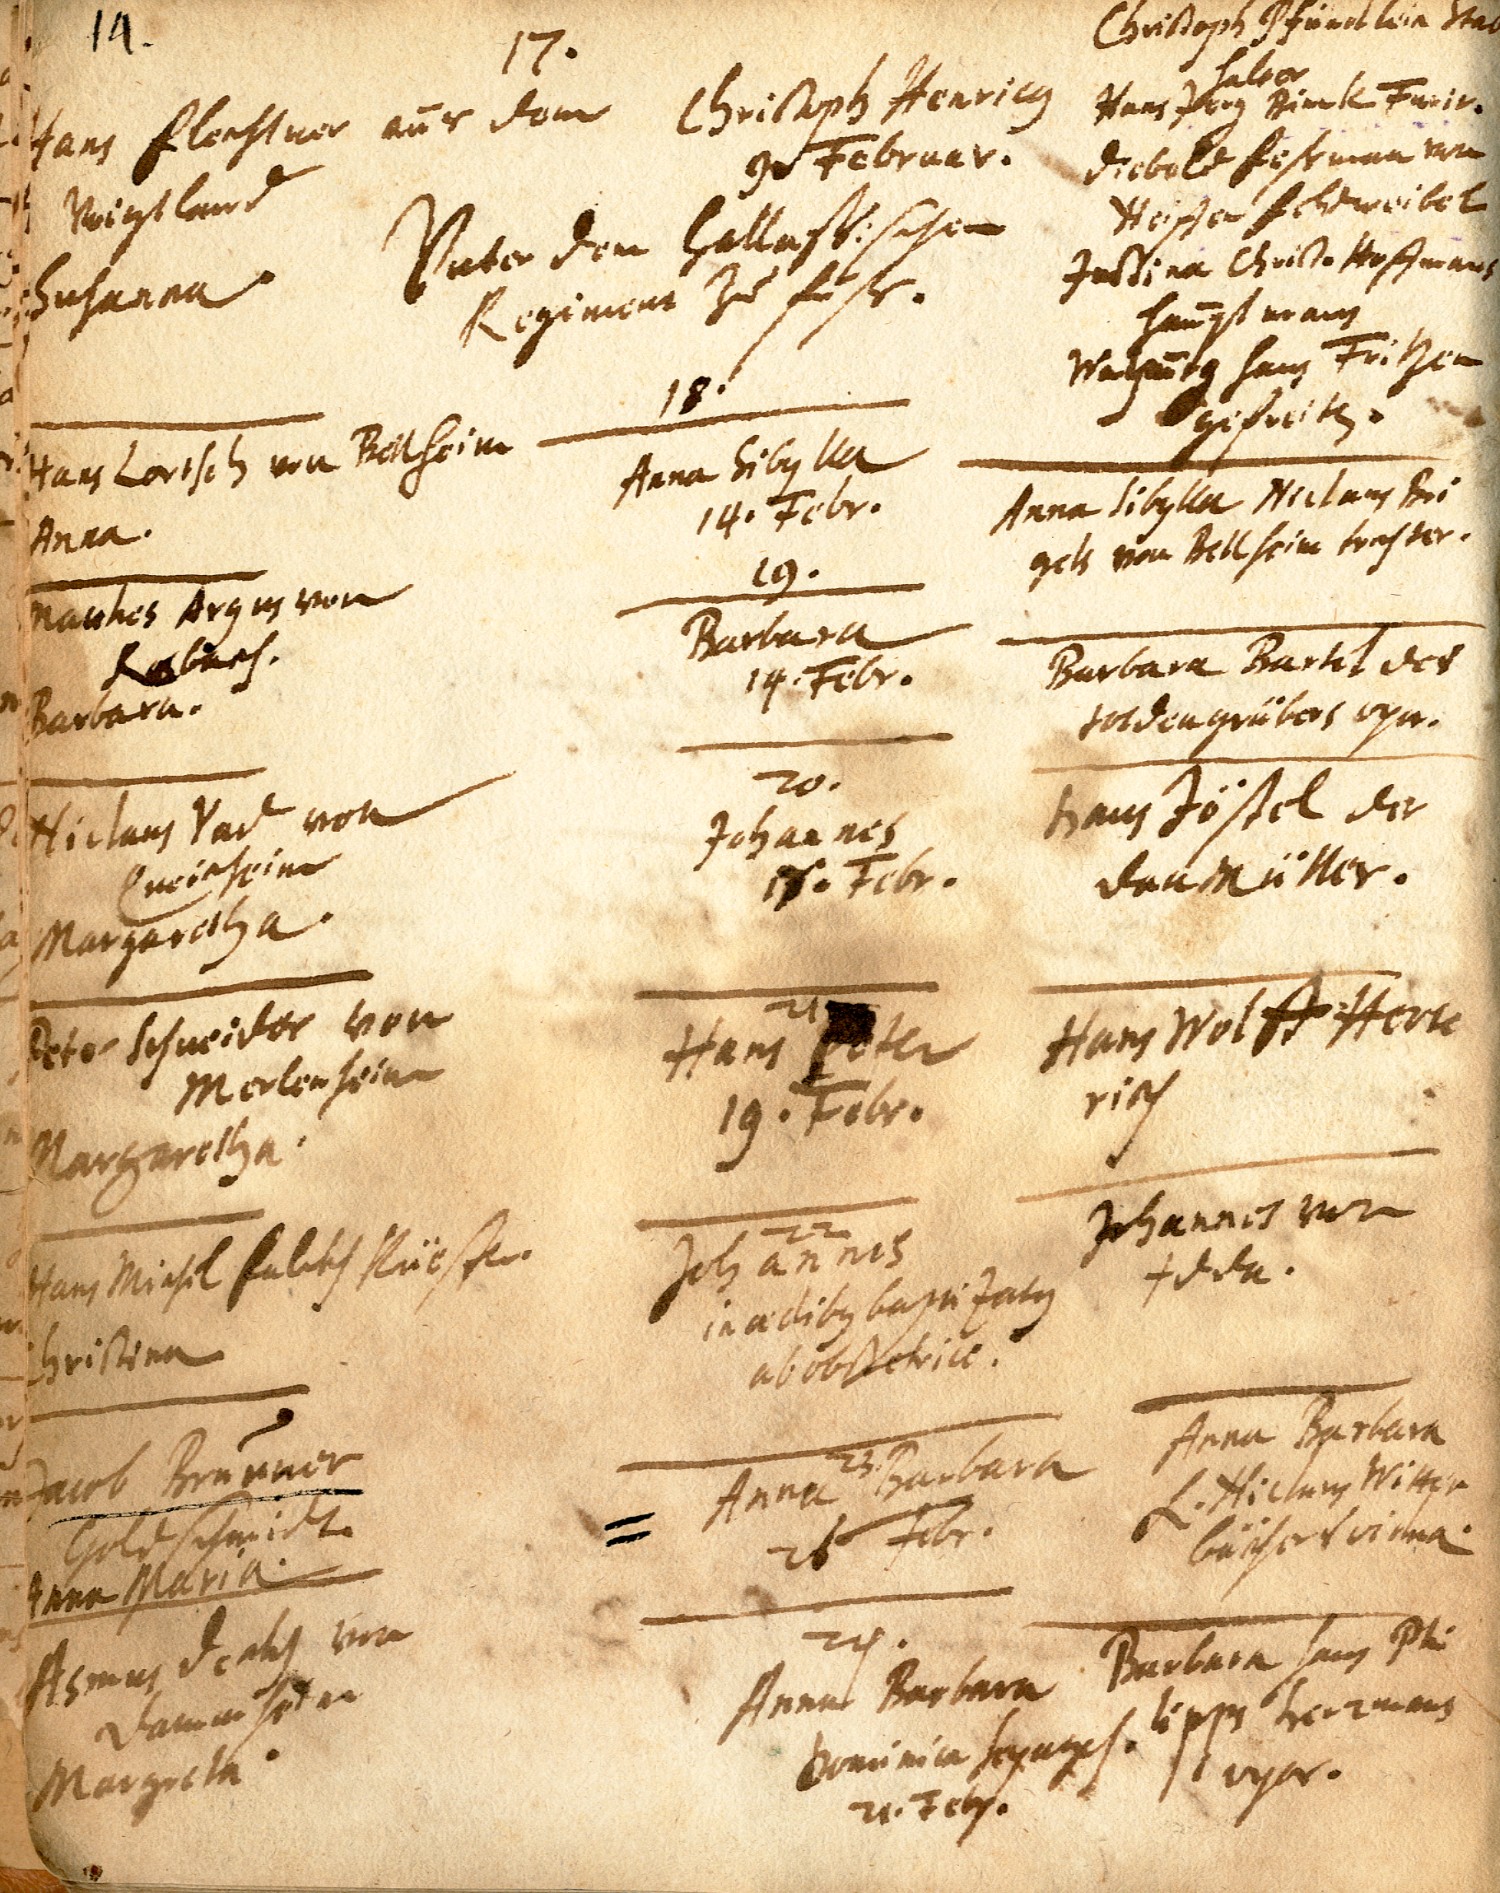 14.
17.
Hans Flechtner auß dem
Voigtland
Susanna.
Christoph Henricg
9 Februar.
Unter dem Gallassischen
Regiment zu fuß.
Christoph Pfündlein
Hans Jerg Zinck Furir.
Diebold Fehrman von
Feldweibel
Justina Christ. Hoffmans
hauptmans
Hans Fritzen
gefreits.
Hans Lortsch von Bellheim
Anna.
18.
Anna Sibylla
14. Febr.
Anna Sibylla Niclaus Bri
gels von Bellheim tochter.
Mathes Argus von
Barbara.
19.
Barbara
14. Febr.
Barbara Bartel des
todengräbers uxor.
Niclaus Vad von
Margaretha.
20.
Johannes
Febr.
Hans Jöstel der
dan Müller.
Peter Schneider von
Merlenheim
Margaretha.
21
Hans Peter
19. Febr.
Hans Wolff Hen
rich
Hans Michel
Christina
22
Johannes
in ædibg baptizatg
ab obstetrice.
Johannes von
Adda.
Jacob Brunner
Goldschmidt.
Anna Maria.
23.
Anna Barbara
Febr.
Anna Barbara
L. Niclaus Witten
vidua.
Asmus von
Dammheim
Margreta.
24.
Anna Barbara
Dominica Sexages.
21. Febr.
Barbara Hans Phi
lipps Herzmans
uxor.